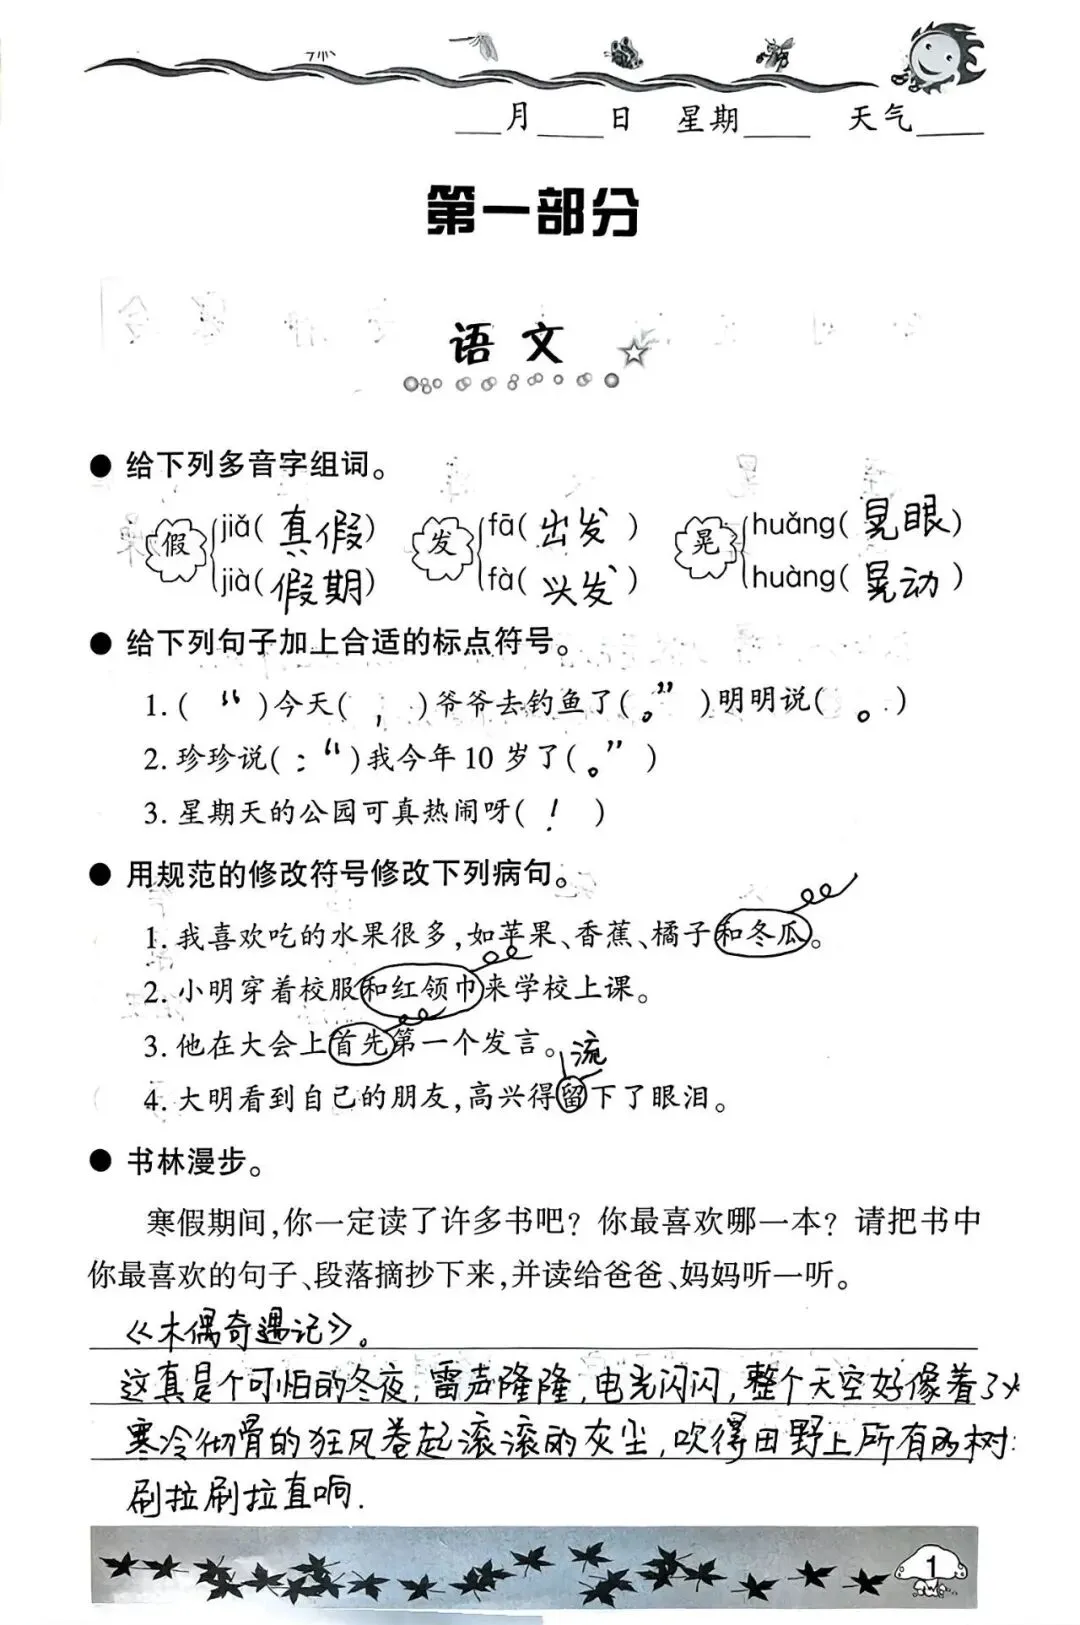 月 日 星期 天气
第一部分
语文
● 给下列多音字组词。
假 jiǎ(真假) 发 fā(出发) 晃 huǎng(晃眼)
jià(假期) fà(兴发) huàng(晃动)
● 给下列句子加上合适的标点符号。
1.(“)今天(,)爷爷去钓鱼了(。”)明明说(。)
2.珍珍说(:“)我今年10岁了(。”)
3.星期天的公园可真热闹呀(!)
● 用规范的修改符号修改下列病句。
1.我喜欢吃的水果很多,如苹果、香蕉、橘子和冬瓜。
2.小明穿着校服和红领巾来学校上课。
3.他在大会上首先第一个发言。
流
4.大明看到自己的朋友,高兴得留下了眼泪。
● 书林漫步。
寒假期间,你一定读了许多书吧?你最喜欢哪一本?请把书中
你最喜欢的句子、段落摘抄下来,并读给爸爸、妈妈听一听。
《木偶奇遇记》。
这真是个可怕的冬夜,雷声隆隆,电光闪闪,整个天空好像着了火
寒冷彻骨的狂风卷起滚滚的灰尘,吹得田野上所有的树
刷拉刷拉直响.
1